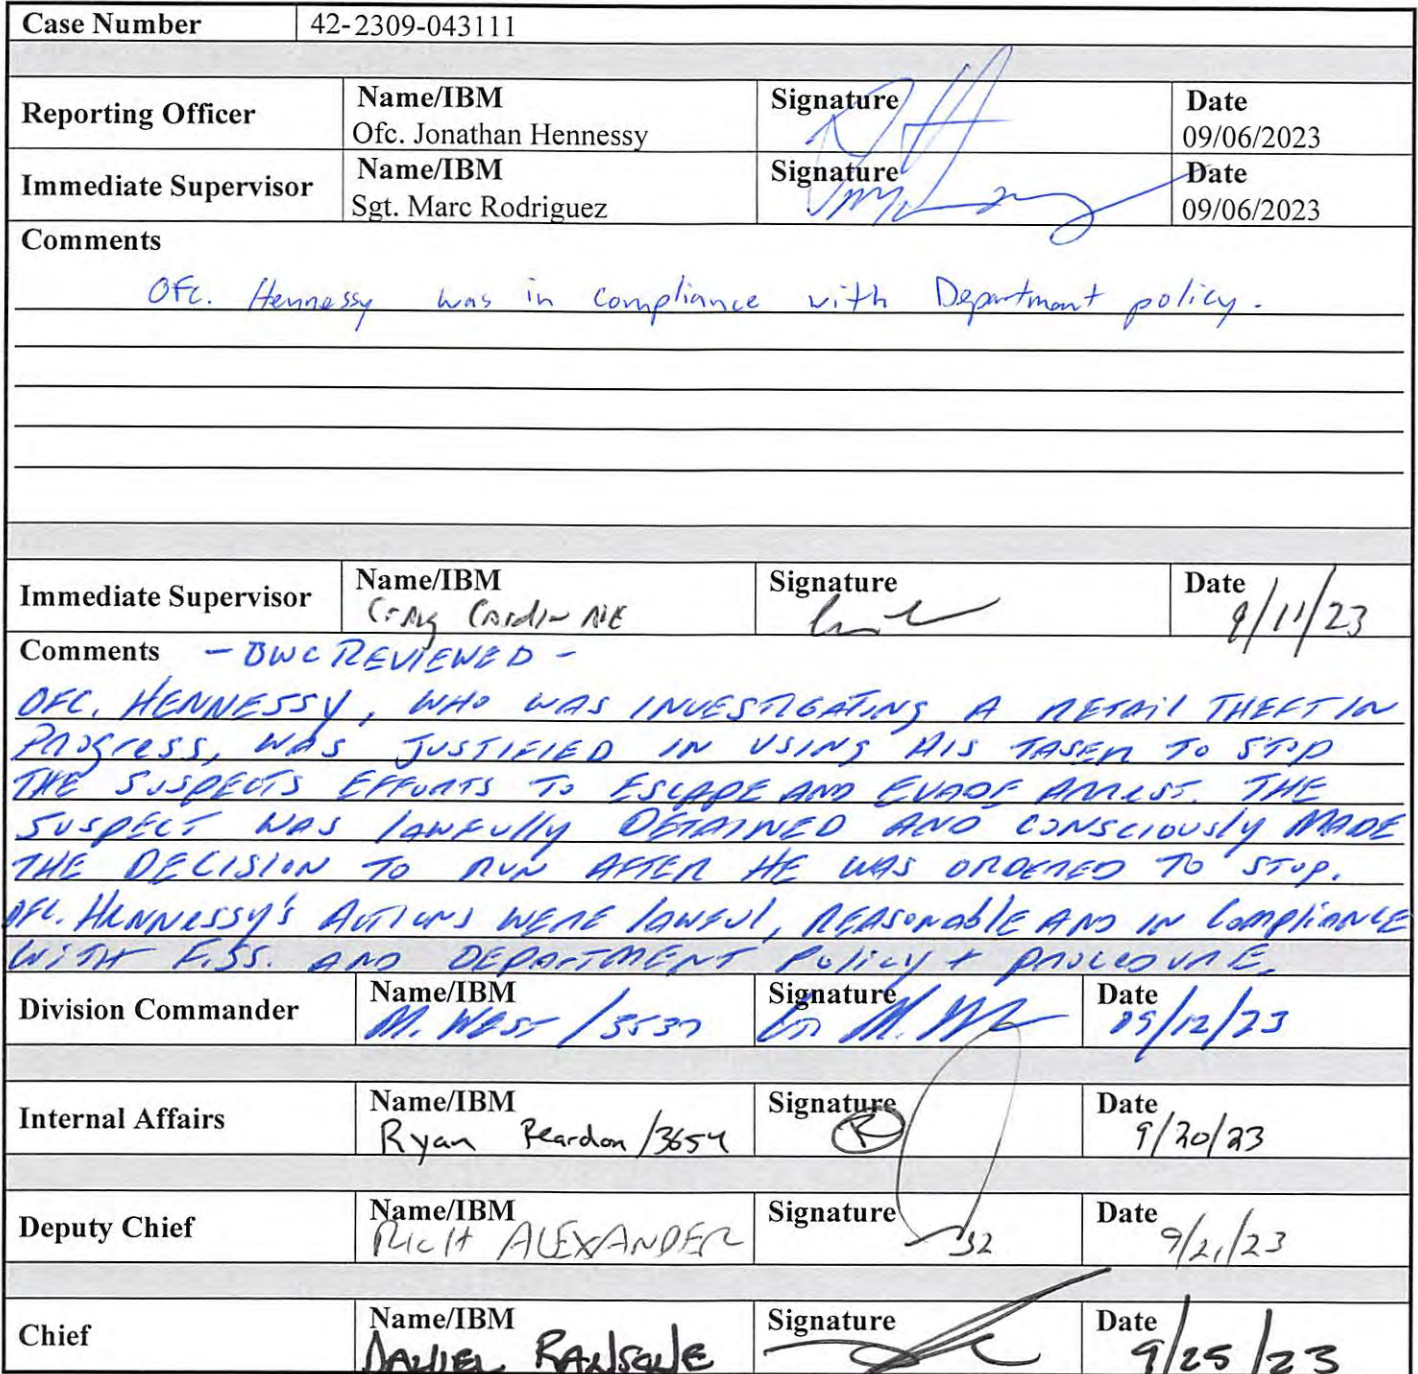 Case Number 42-2309-043111
Reporting Officer Name/IBM Signature Date
Ofc. Jonathan Hennessy 09/06/2023
Immediate Supervisor Name/IBM Signature Date
Sgt. Marc Rodriguez 09/06/2023
Comments
OFC. Hennessy was in compliance with Department policy.
Immediate Supervisor Name/IBM Signature Date
Craig 9/11/23
Comments - BWC REVIEWED -
OFC. HENNESSY, WHO WAS INVESTIGATING A RETAIL THEFT IN
PROGRESS, WAS JUSTIFIED IN USING HIS TASER TO STOP
THE SUSPECTS EFFORTS TO ESCAPE AND EVADE ARREST. THE
SUSPECT WAS LAWFULLY DETAINED AND CONSCIOUSLY MADE
THE DECISION TO RUN AFTER HE WAS ORDERED TO STOP.
OFC. HENNESSY'S ACTIONS WERE LAWFUL, REASONABLE AND IN COMPLIANCE
WITH F.SS. AND DEPARTMENT POLICY + PROCEDURE.
Division Commander Name/IBM Signature Date
M. WEST /3537 09/12/23
Internal Affairs Name/IBM Signature Date
Ryan Reardon /3654 R 9/20/23
Deputy Chief Name/IBM Signature Date
RICH ALEXANDER 9/21/23
Chief Name/IBM Signature Date
DANIEL 9/25/23